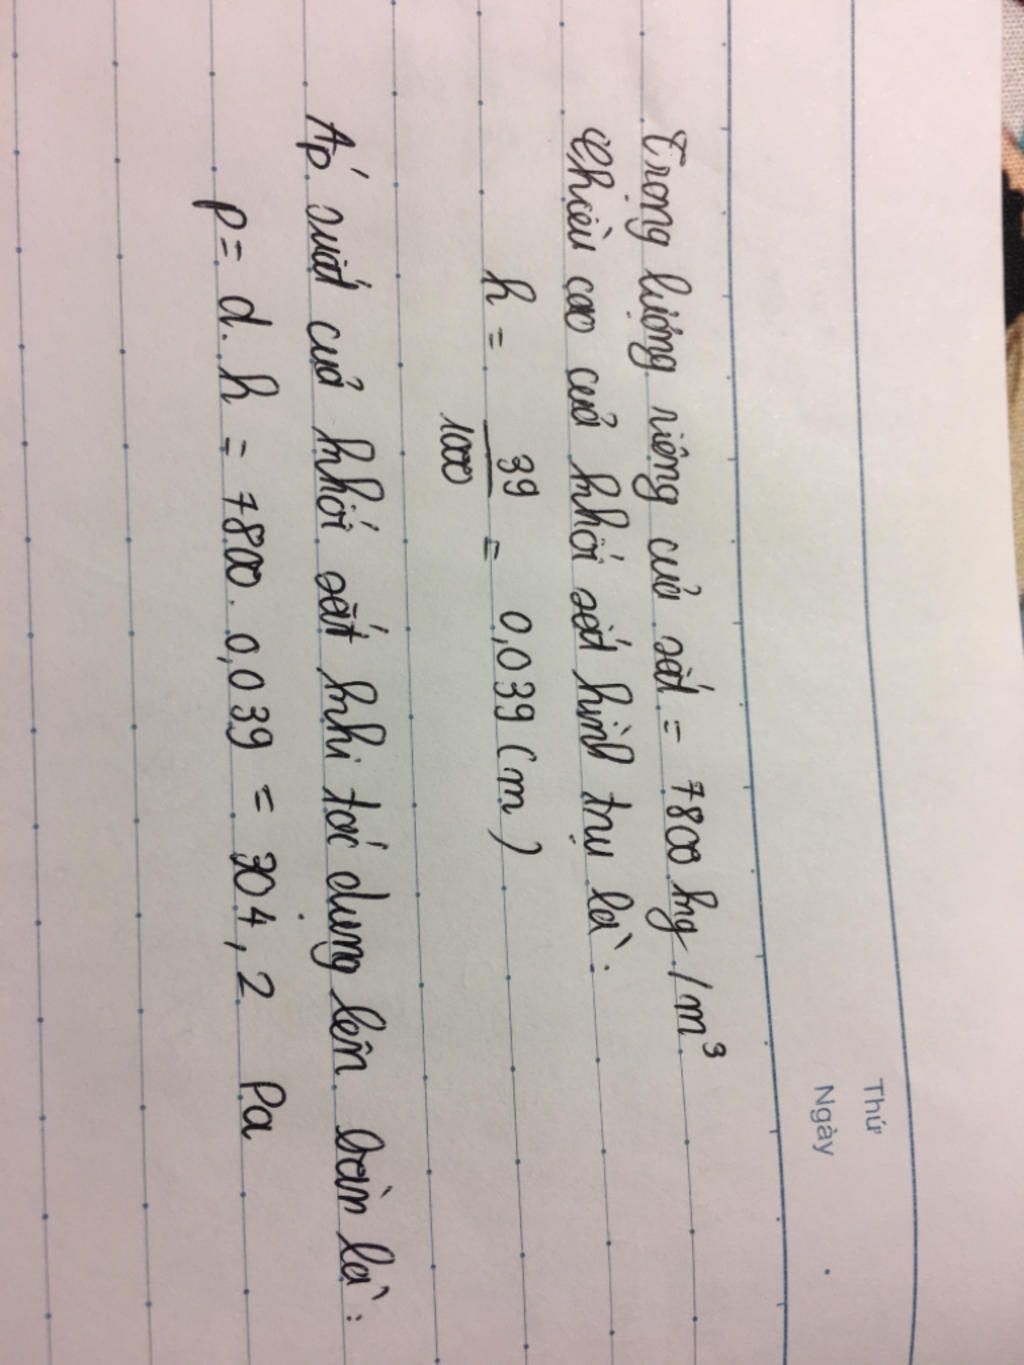 Thứ
Ngày
Trọng lượng riêng của sắt = 7800 kg/m³
Chiều cao của khối sắt hình trụ là:
h = 39/1000 = 0,039 (m)
Áp suất của khối sắt khi tác dụng lên bàn là:
p = d.h = 7800. 0,039 = 304,2 Pa